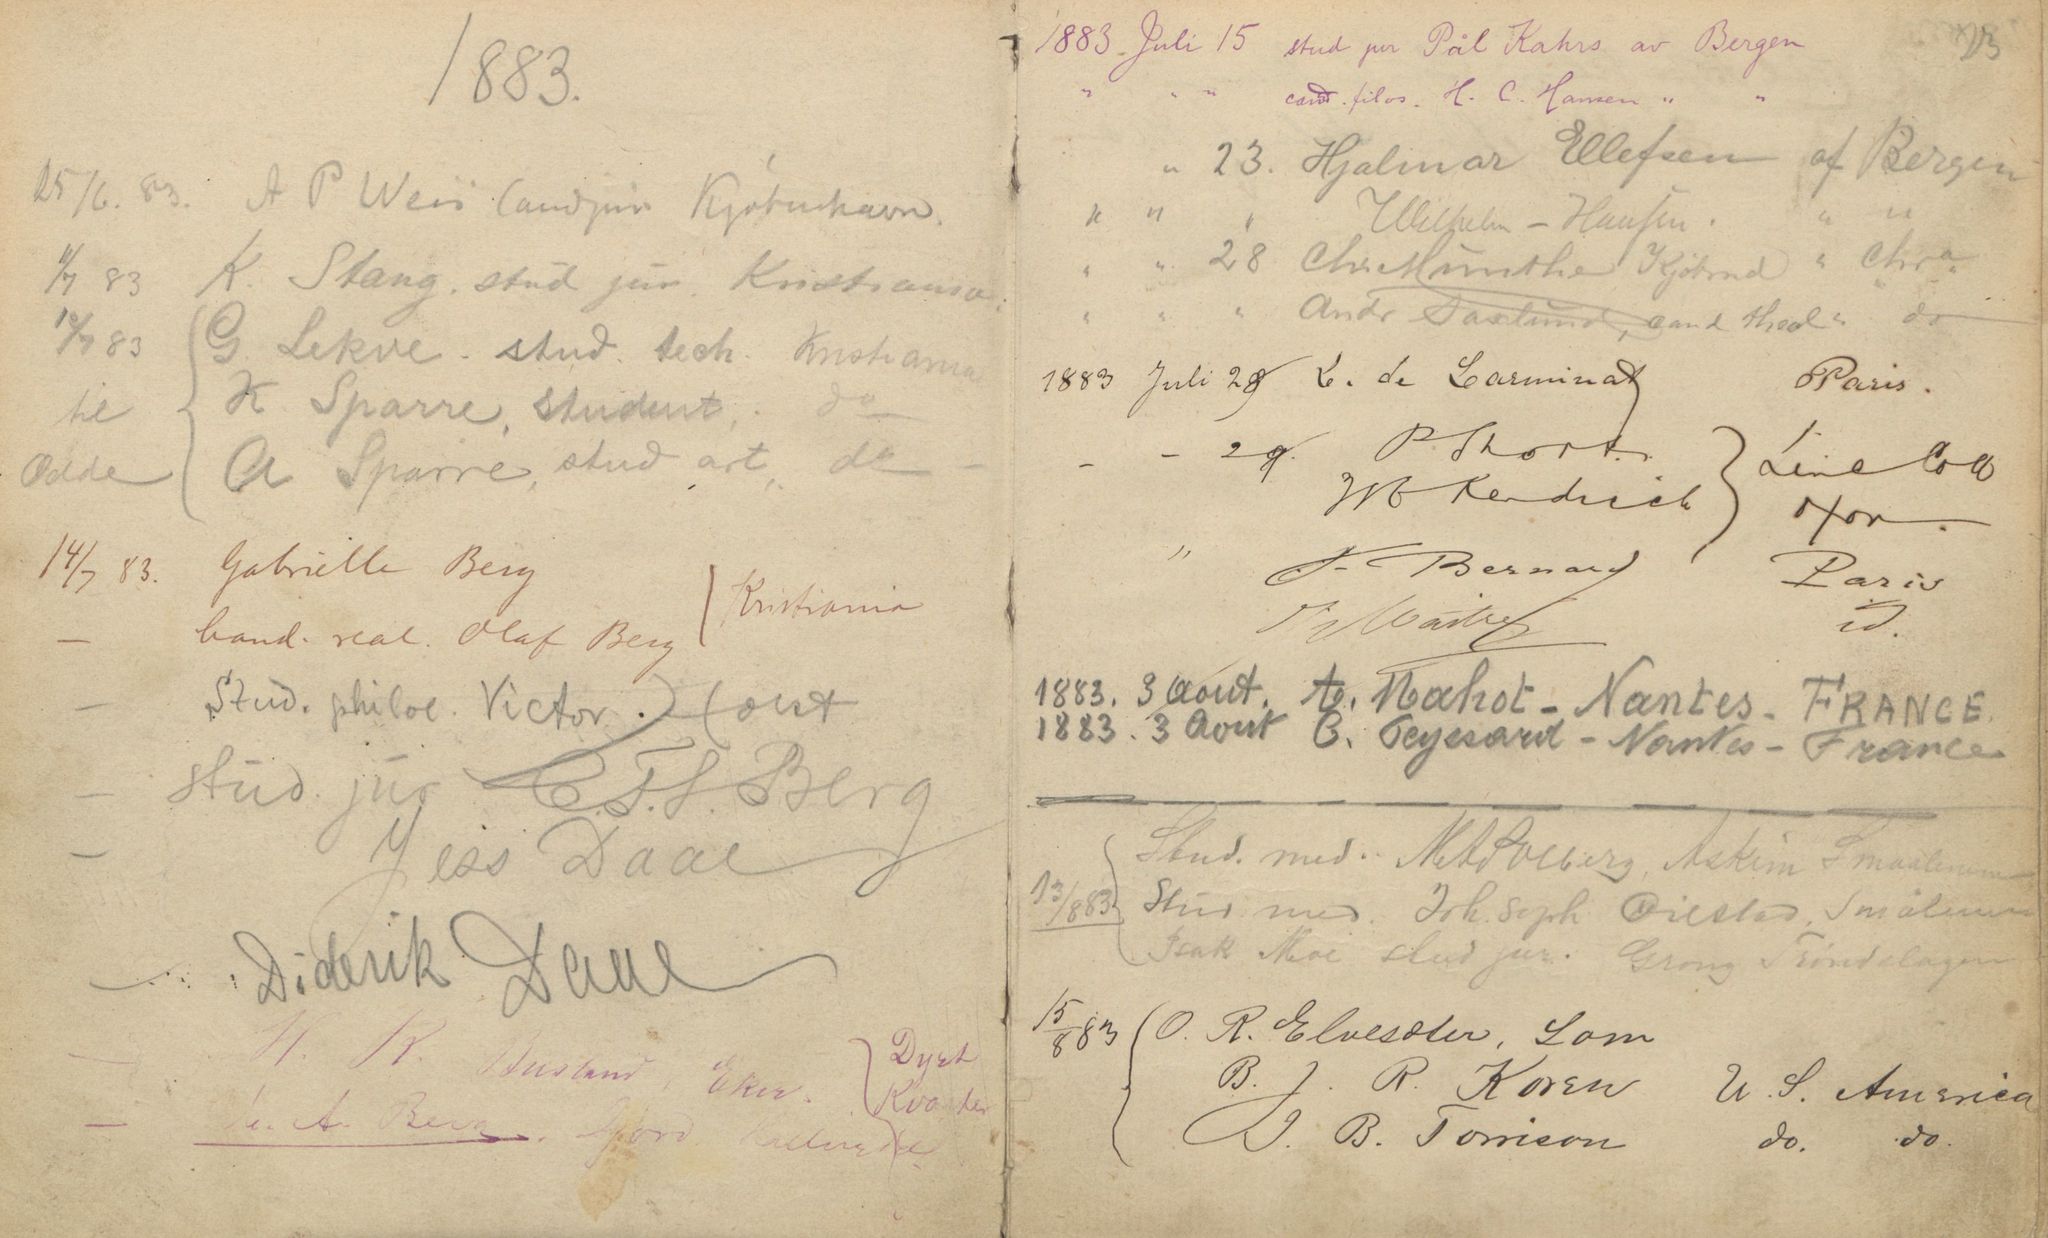 1883.
25/6. 83. A P Weis Candjur Kjøbenhavn.
11/7 83 K. Stang. stud jur. Kristiania.
12/7 83 G Lekve. stud. tech. Kristiania
til K Sparre, student, do
Odde A Sparre, stud art, do -
14/7 83. Gabrielle Berg
Kristiania
- Cand. real. Olaf Berg
- Stud. philol. Victor
- stud. jur C. Berg
- Jess Daae
- Diderik Daae
- H. K. Eker. Dyrt
- A. Berg
1883 Juli 15 stud jur Pål Kahrs av Bergen
" " " cand. filos. H. C. Hansen " "
" 23. Hjalmar Ellefsen af Bergen
" " " Wilhelm - Hansen. " "
" " 28 Chr Munthe " Chra
" " " Andr Saxlund, cand theol " do
1883 Juli 28 L. de Larminat Paris.
- - 29. P. Short.
Coll
W Kendrick
Oxon.
" Bernard Paris
id.
1883. 3 Aout. A. Mahot - Nantes - FRANCE.
1883. 3 Aout C. Teyssard - Nantes - France
Stud. med. Solberg, Askim Smaalenene
13/8 83 Stud med. Joh. Soph Oilstad, Smålenene
Isak Moe stud jur. Grong Trøndelagen
15/8 83 O. R. Elvesæter, Lom
B. J. R. Koren U. S. America
J. B. Torrison do. do.